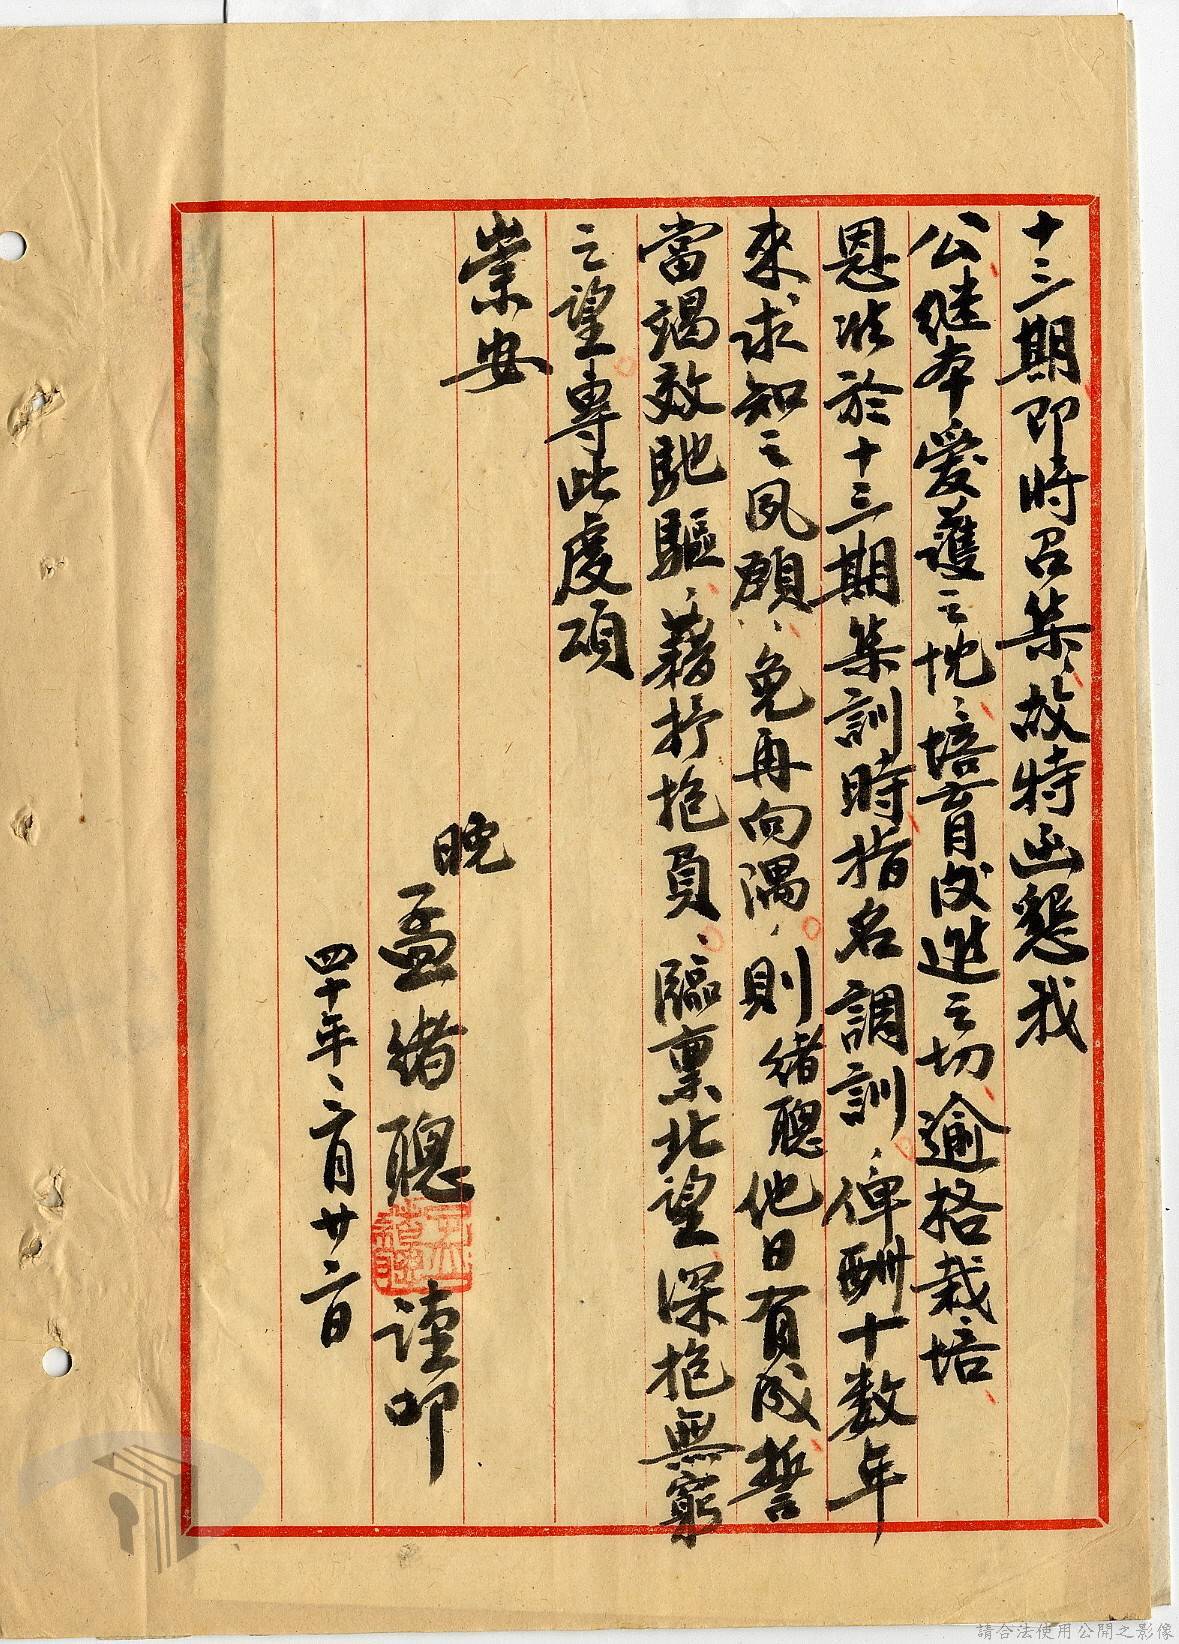 十三期即將召集、故特函懇我
公繼本愛護之忱、培育後進之切、逾格栽培、
恩准於十三期集訓時指名調訓、俾酬十數年
來求知之夙願、免再向隅、則緒聰他日有成誓
當竭效馳驅、藉抒抱負、臨稟北望深抱無窮
之望專此虔頌
崇安
晚
孟緒聰 謹叩
四十年、二月廿二日
請合法使用公開之影像